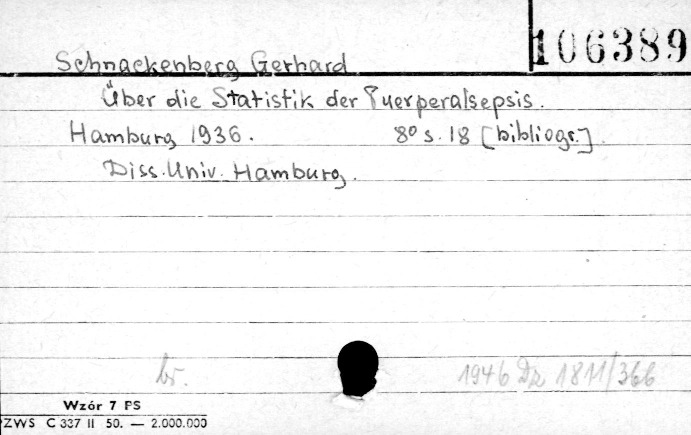 106389
Schnackenberg Gerhard
Über die Statistik der Puerperalsepsis.
Hamburg 1936. 8° s. 18 [bibliogr.]
Diss. Univ. Hamburg.
br. 1946 Dz 1811/366
Wzór 7 PS
PZWS C 337 II 50. — 2.000.000